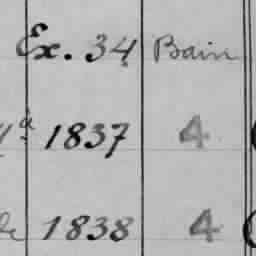 Ex. 34 Bain
à 1837 4
1838 4